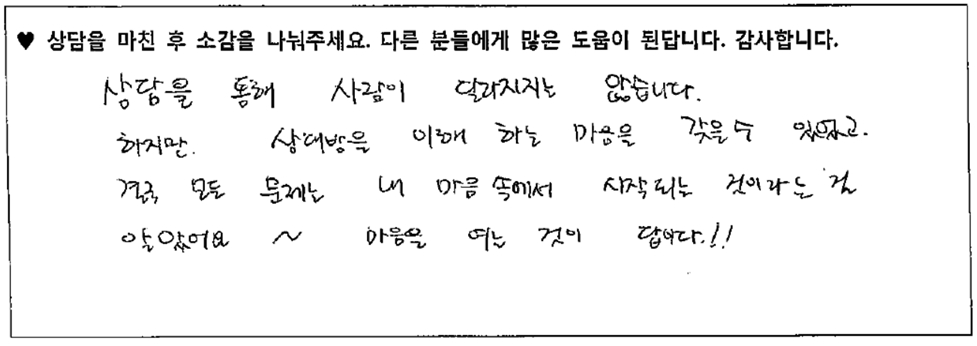 ♥ 상담을 마친 후 소감을 나눠주세요. 다른 분들에게 많은 도움이 된답니다. 감사합니다.
상담을 통해 사람이 달라지지는 않습니다.
하지만. 상대방을 이해 하는 마음을 갖을 수 있었고.
결국 모든 문제는 내 마음 속에서 시작되는 것이라는 걸
알았어요 ~ 마음을 여는 것이 답이다.!!